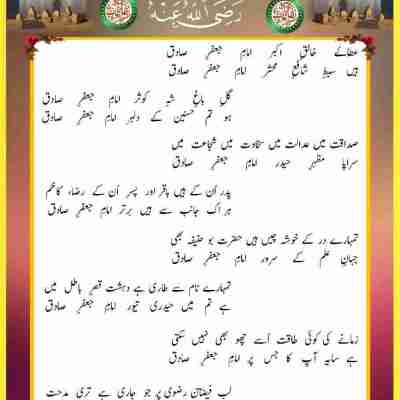 رَضِیَ اللہُ عَنْہُ
عطائے خالقِ اکبر امامِ جعفرِ صادق
ہیں سبطِ شافعِ محشر امامِ جعفرِ صادق
گلِ باغِ شہِ کوثر امامِ جعفرِ صادق
ہو تم حسنین کے دلبر امامِ جعفرِ صادق
صداقت میں عدالت میں سخاوت میں شجاعت میں
سراپا مظہرِ حیدر امامِ جعفرِ صادق
پدر اُن کے ہیں باقر اور پسر اُن کے رضا، کاظم
ہر اک جانب سے ہیں برتر امامِ جعفرِ صادق
تمہارے در کے خوشہ چیں ہیں حضرت بو حنیفہ بھی
جہانِ علم کے سرور امامِ جعفرِ صادق
تمہارے نام سے طاری ہے دہشت قصرِ باطل میں
ہے تم میں حیدری تیور امامِ جعفرِ صادق
زمانے کی کوئی طاقت اُسے چھو بھی نہیں سکتی
ہے سایہ آپ کا جس پر امامِ جعفرِ صادق
لب فیضانِ رضوی پر جو جاری ہے تری مدحت